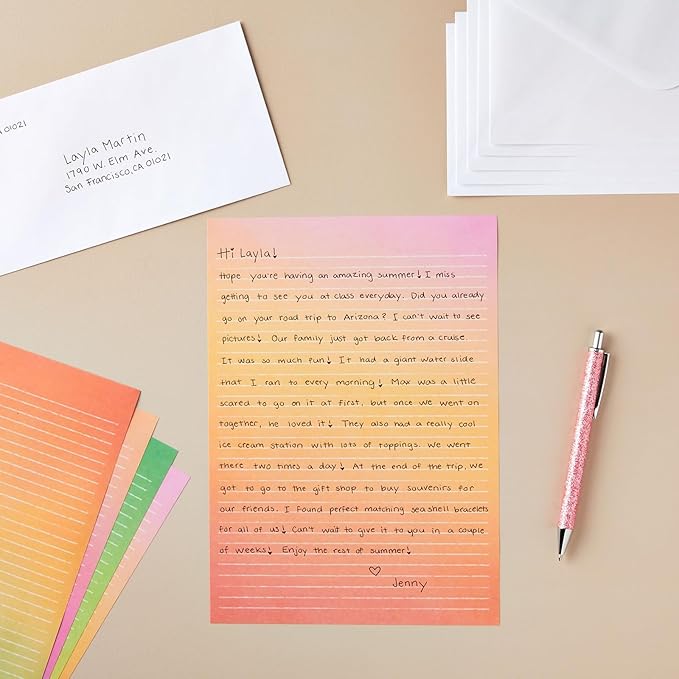 01021
Layla Martin
1790 W. Elm Ave.
San Francisco, CA 01021
Hi Layla!
Hope you're having an amazing summer! I miss
getting to see you at class everyday. Did you already
go on your road trip to Arizona? I can't wait to see
pictures! Our family just got back from a cruise.
It was so much fun! It had a giant water slide
that I ran to every morning! Max was a little
scared to go on it at first, but once we went on
together, he loved it! They also had a really cool
ice cream station with lots of toppings. We went
there two times a day! At the end of the trip, we
got to go to the gift shop to buy souvenirs for
our friends. I found perfect matching seashell bracelets
for all of us! Can't wait to give it to you in a couple
of weeks! Enjoy the rest of summer!
♡
Jenny